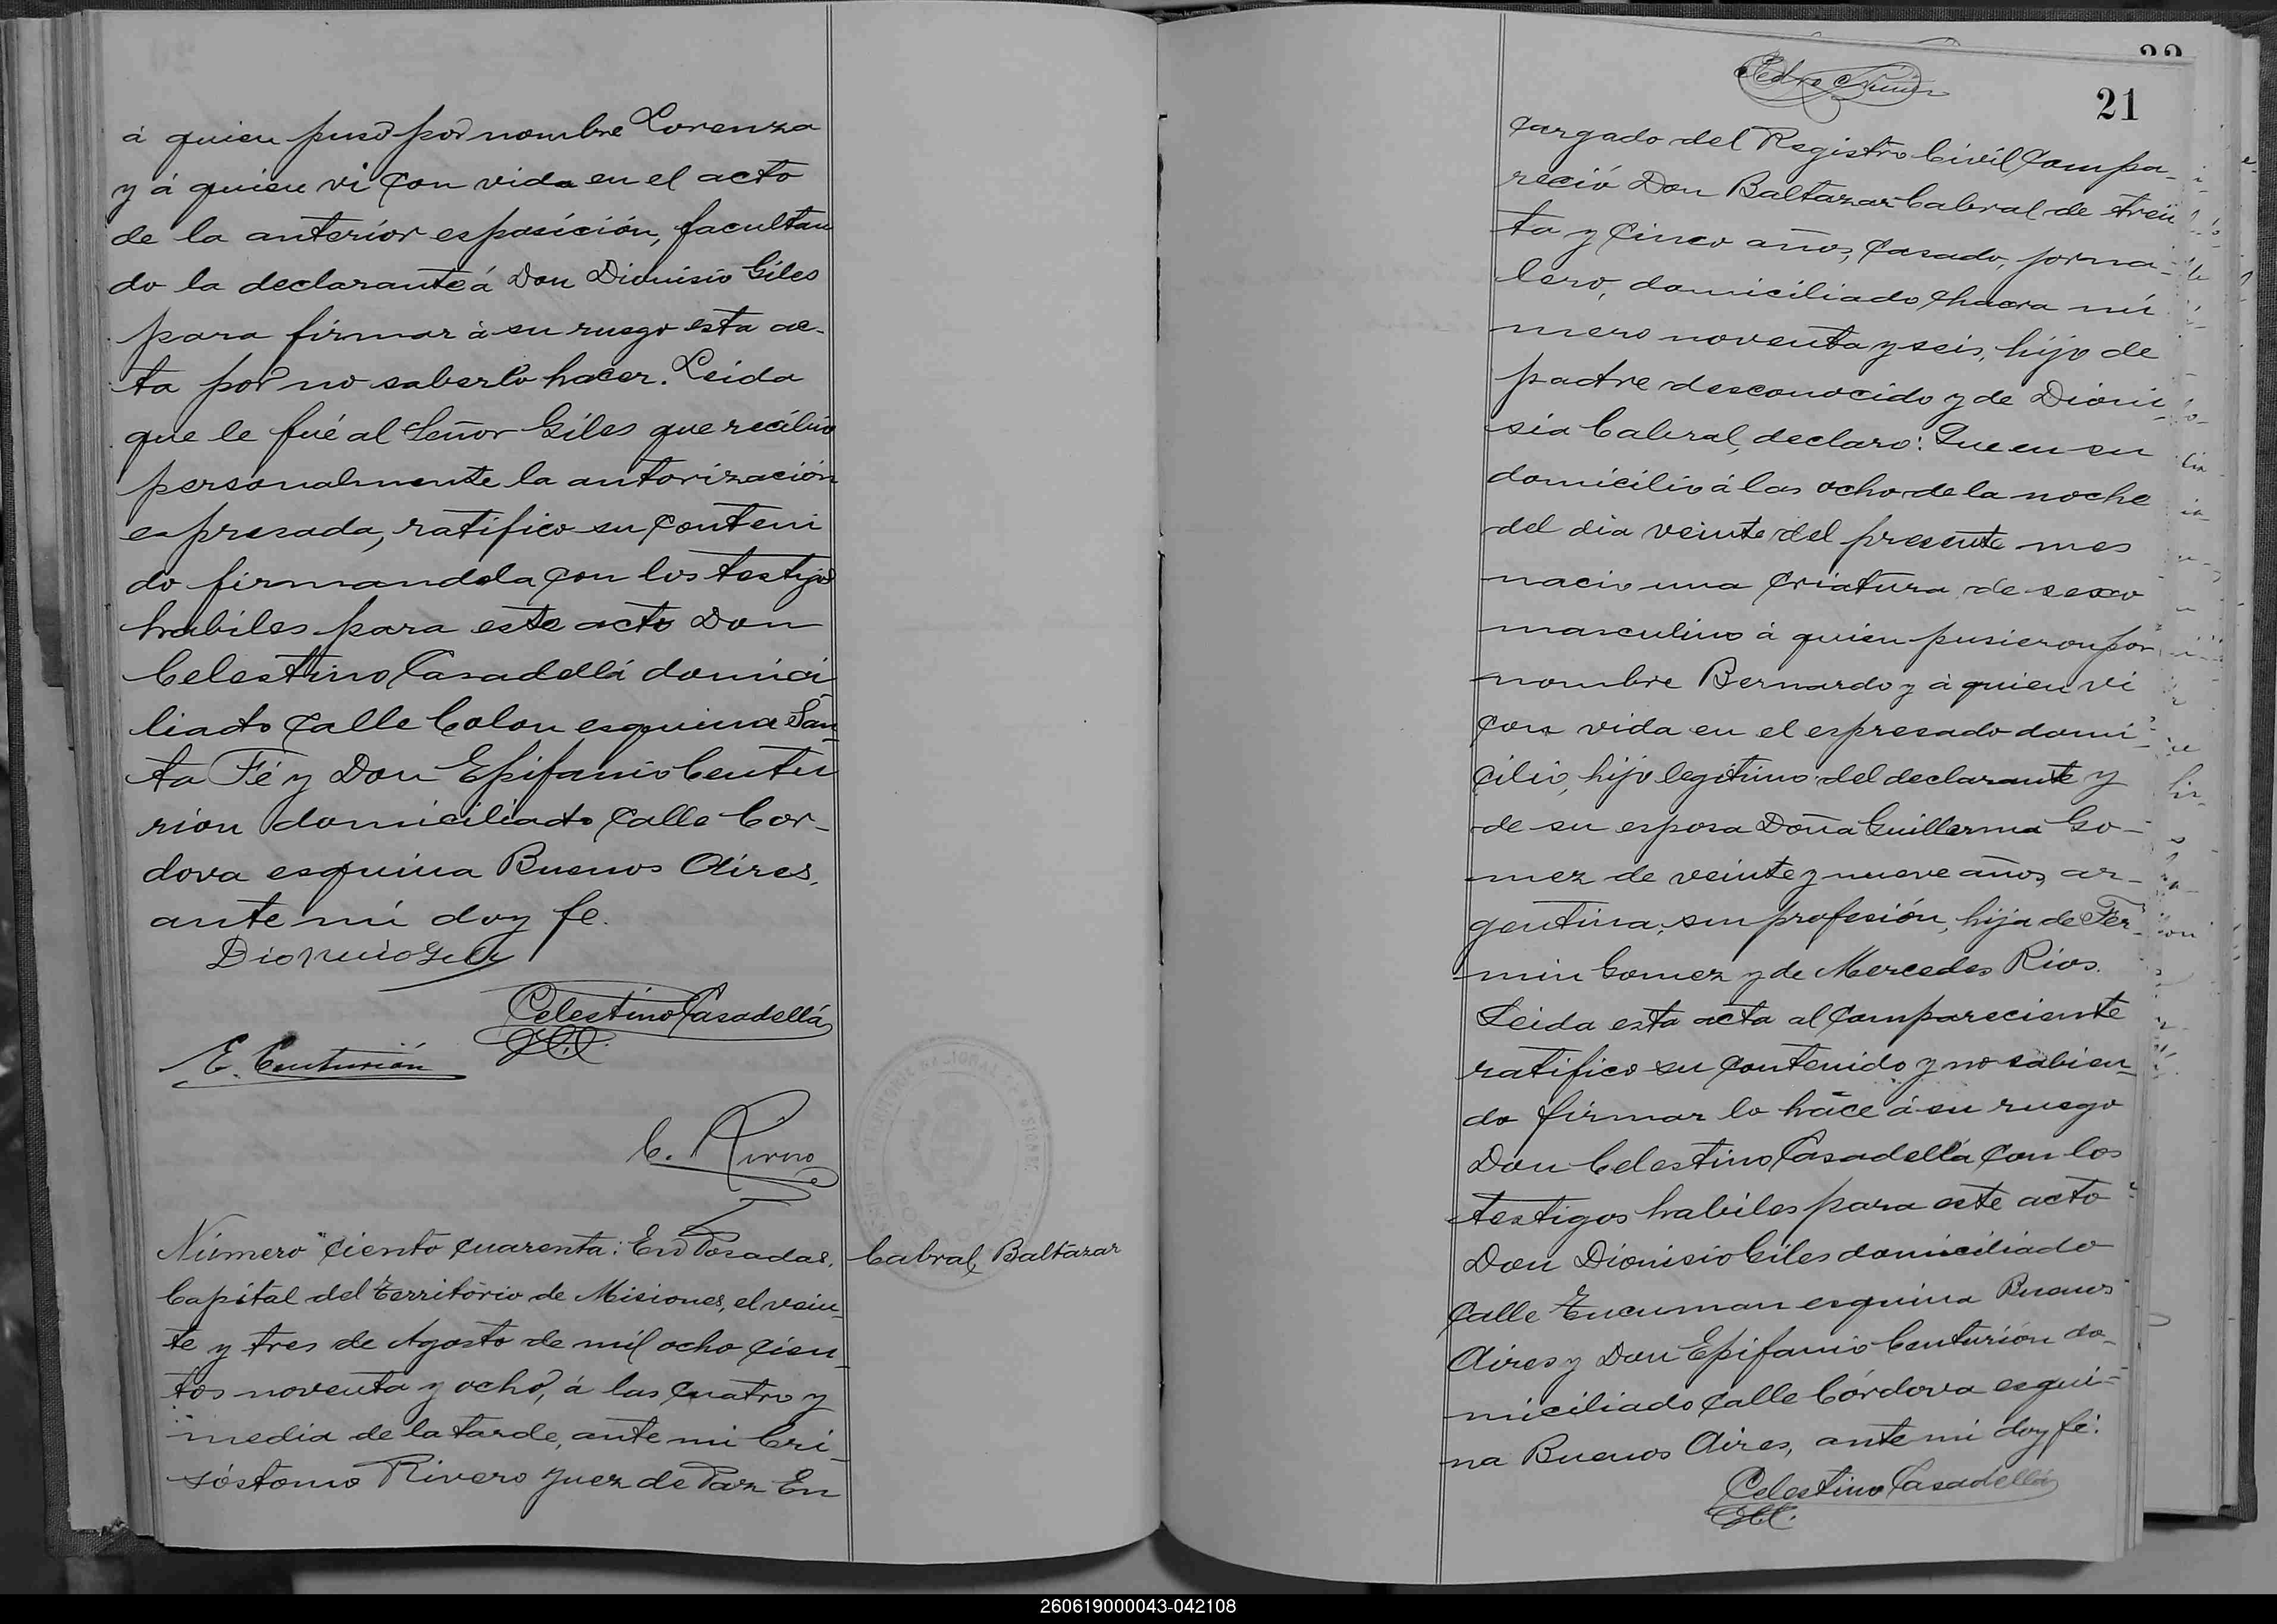 á quien puso por nombre Lorenza
y á quien vi con vida en el acto
de la anterior esposición, facultan
do la declarante á Don Dionisio Giles
para firmar á su ruego esta ac-
ta por no saberlo hacer. Leida
que le fué al Señor Giles que recibió
personalmente la autorización
espresada, ratifico su conteni
do firmandola con los testigos
habiles para este acto Don
Celestino Casadellá domici
liado calle Colon esquina San-
ta Fé y Don Epifanio Centu
rion domiciliado calle Cor-
dova esquina Buenos Aires,
ante mi doy fe.
Dionicio Giles
Celestino Casadellá
E. Centurión
C. Rivero
Número ciento cuarenta: En Posadas,
Capital del Territorio de Misiones, el vein-
te y tres de Agosto de mil ocho cien-
tos noventa y ocho, á las cuatro y
media de la tarde, ante mi Cri-
sóstomo Rivero Juez de Paz En
Cabral, Baltazar
21
cargado del Registro Civil compa-
reció Don Baltazar Cabral de trein
ta y cinco años, casado, jorna-
lero, domiciliado chacra nú
mero noventa y seis, hijo de
padre desconocido y de Dioni-
sia Cabral, declaro: Que en su
domicilio á las ocho de la noche
del dia veinte del presente mes
nacio una criatura de sexo
masculino á quien pusieron por
nombre Bernardo y á quien vi
con vida en el espresado domi-
cilio, hijo legitimo del declarante y
de su esposa Doña Guillerma Go-
mez de veinte y nueve años, ar-
gentina, sin profesión, hija de Fer-
min Gomez y de Mercedes Rios.
Leida esta acta al compareciente
ratifico su contenido y no sabien-
do firmar lo hace á su ruego
Don Celestino Casadellá con los
testigos habiles para este acto
Don Dionisio Giles domiciliado
calle Tucuman esquina Buenos
Aires y Don Epifanio Centurión do-
miciliado calle Córdova esqui-
na Buenos Aires, ante mi doy fé.
Celestino Casadellá
260619000043-042108